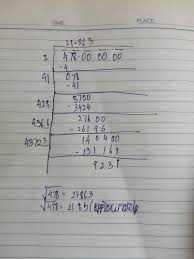 TIME:
PLACE:
21.863
2 478.00 00 00
-4
41 078
-41
428 3700
-3424
4366 27600
-26196
43723 140400
-131169
9231
√478 = 21.863
√478 = 21.85 (approximately)